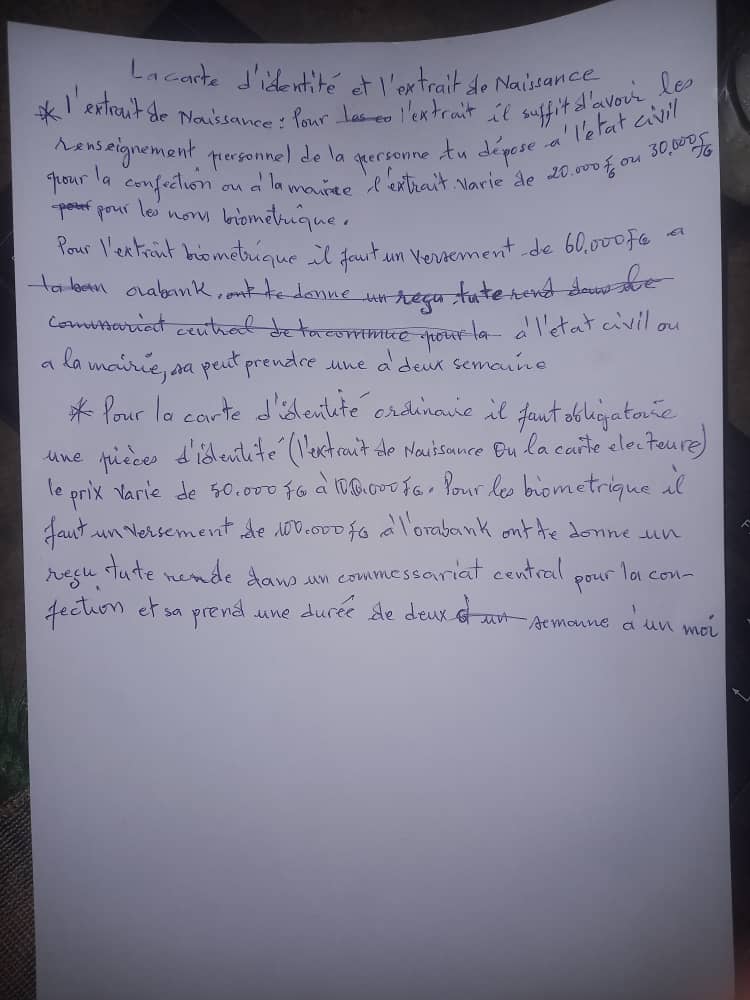 La carte d'identité et l'extrait de Naissance
* l'extrait de Naissance : Pour les co l'extrait il suffit d'avoir les
renseignement personnel de la personne tu dépose a l'état civil
pour la confection ou à la mairie l'extrait varie de 20.000fg ou 30.000fg
pour pour les nons biometrique.
Pour l'extrait biometrique il faut un versement de 60.000FG a
la ban orabank, ont te donne un reçu tute rend dans le
commisariat central de la commune pour la à l'état civil ou
a la mairie, sa peut prendre une à deux semaine
* Pour la carte d'identité ordinaire il faut obligatoire
une pièces d'identité (l'extrait de Naissance Ou la carte electeure)
le prix varie de 50.000 FG à 100.000 FG. Pour les biometrique il
faut un versement de 100.000 FG à l'orabank ont te donne un
reçu tute rende dans un commessariat central pour la con-
fection et sa prend une durée de deux à un semanne à un moi